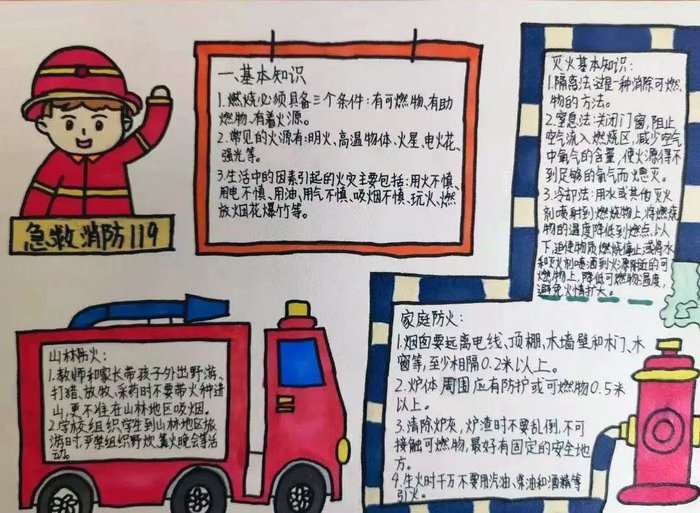 急救消防119
一、基本知识
1.燃烧必须具备三个条件：有可燃物、有助
燃物、有着火源。
2.常见的火源有：明火、高温物体、火星、电火花、
强光等。
3.生活中的因素引起的火灾主要包括：用火不慎、
用电不慎、用油、用气不慎、吸烟不慎、玩火、燃
放烟花爆竹等。
灭火基本知识：
1.隔离法：这是一种消除可燃
物的方法。
2.窒息法：关闭门窗，阻止
空气流入燃烧区，减少空气
中氧气的含量，使火源得不
到足够的氧气而熄灭。
3.冷却法：用水或其他灭火
剂喷射到燃烧物上，将燃烧
物的温度降低到燃点以
下，迫使物质燃烧停止；或将水
和灭火剂喷洒到火源附近的可
燃物上，降低可燃物温度，
避免火情扩大。
山林防火：
1.教师和家长带孩子外出野游、
打猎、放牧、采药时不要带火种进
山，更不准在山林地区吸烟。
2.学校组织学生到山林地区旅
游时，严禁组织野炊、篝火晚会等活
动。
家庭防火：
1.烟囱要远离电线、顶棚、木墙壁和木门、木
窗等，至少相隔0.2米以上。
2.炉体周围应有防护或可燃物0.5米
以上。
3.清除炉灰，炉渣时不要乱倒，不可
接触可燃物，最好有固定的安全地
方。
4.生火时千万不要用汽油、柴油和酒精等
引火。